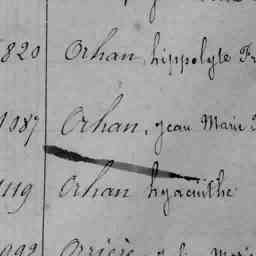 820 Orhan, hippolyte Fr
1087 Orhan, jean Marie
1119 Orhan hyacinthe
992